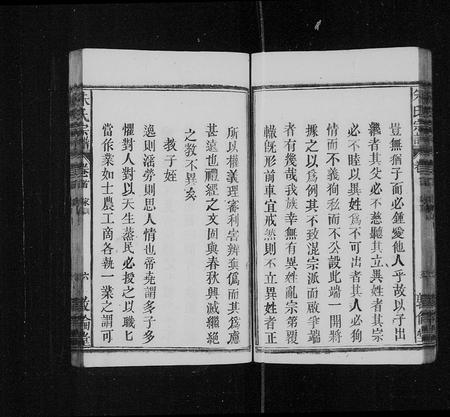 豈無猶子而必鍾愛他人乎故以子出
繼者其父必不慈聽其立異姓者其宗
必不睦以異姓爲不可出者其人必狗
情而不義狗私而不公設此端一開將
據之以爲例其不致混宗派而啟爭端
者有幾哉我族幸無有異姓亂宗第覆
轍旣形前車宜戒然則不立異姓者正
所以權義理審利害辨眞僞而其爲慮
甚遠也禮經之文固與春秋興滅繼絕
之教不異矣
教子姪
逸則淫勞則思人情也帝堯謂多子多
懼對人對以天生蒸民必授之以職匕
當作業如士農工商各執一業之謂可
朱氏宗譜
卷首
六